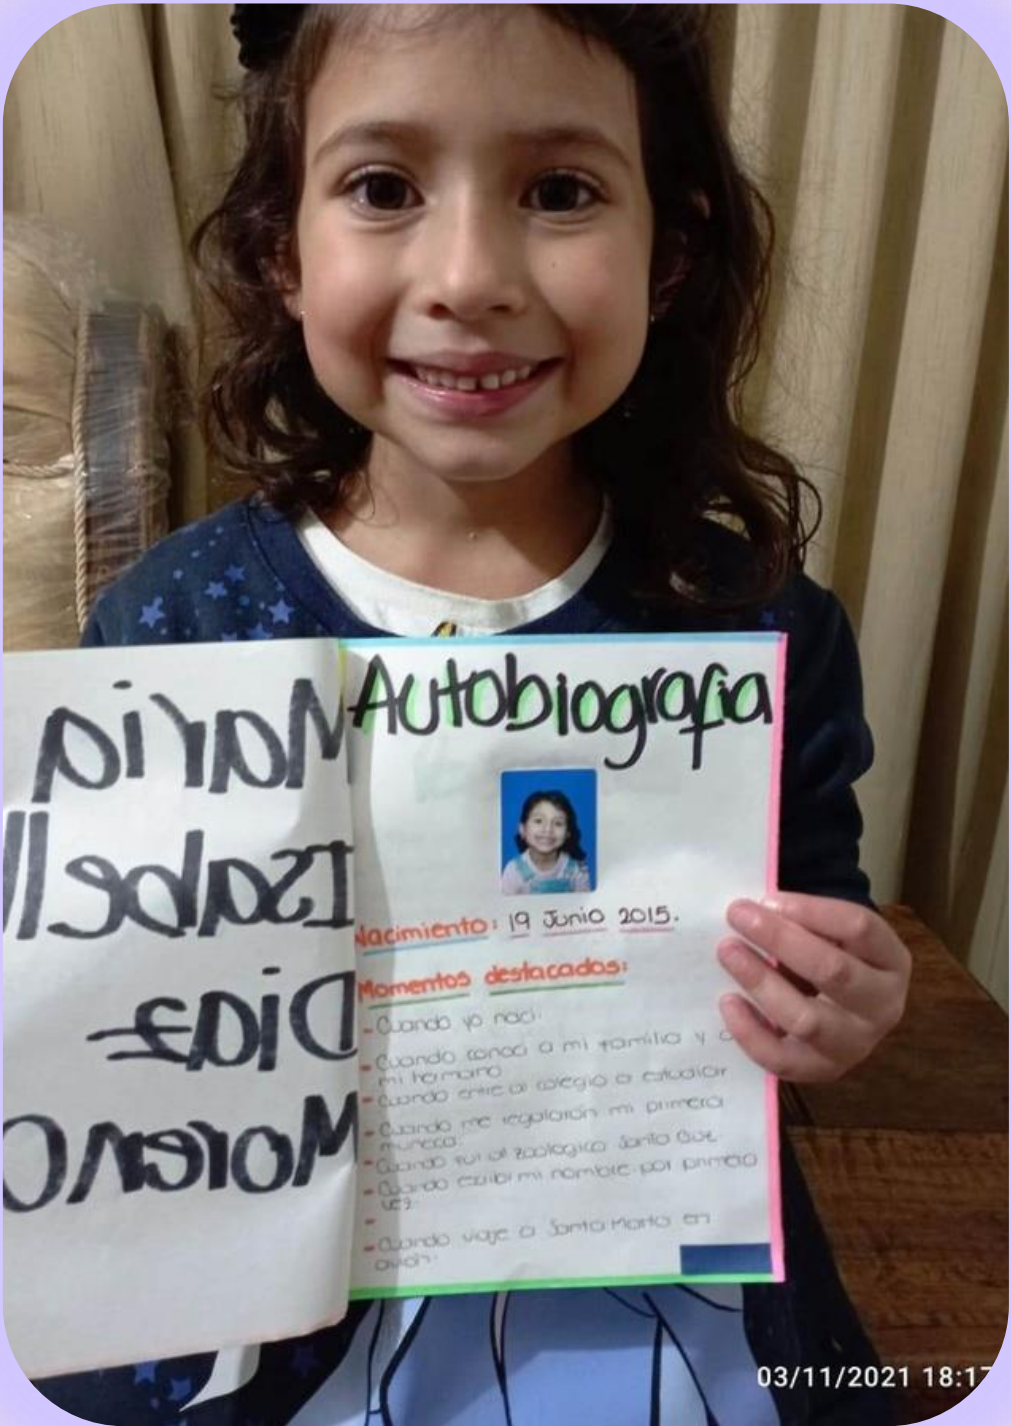 Maria
Isabell
Diaz
Moreno
Autobiografia
Nacimiento: 19 Junio 2015.
Momentos destacados:
- Cuando yo naci.
- Cuando conoci a mi familia y a
mi hermano
- Cuando entre al colegio a estudiar
- Cuando me regalaron mi primera
muñeca.
- Cuando fui al zoologico Santa Cruz
- Cuando escibi mi nombre por primera
vez.
-
- Cuando viaje a Santa Marta en
avion.
03/11/2021 18:17